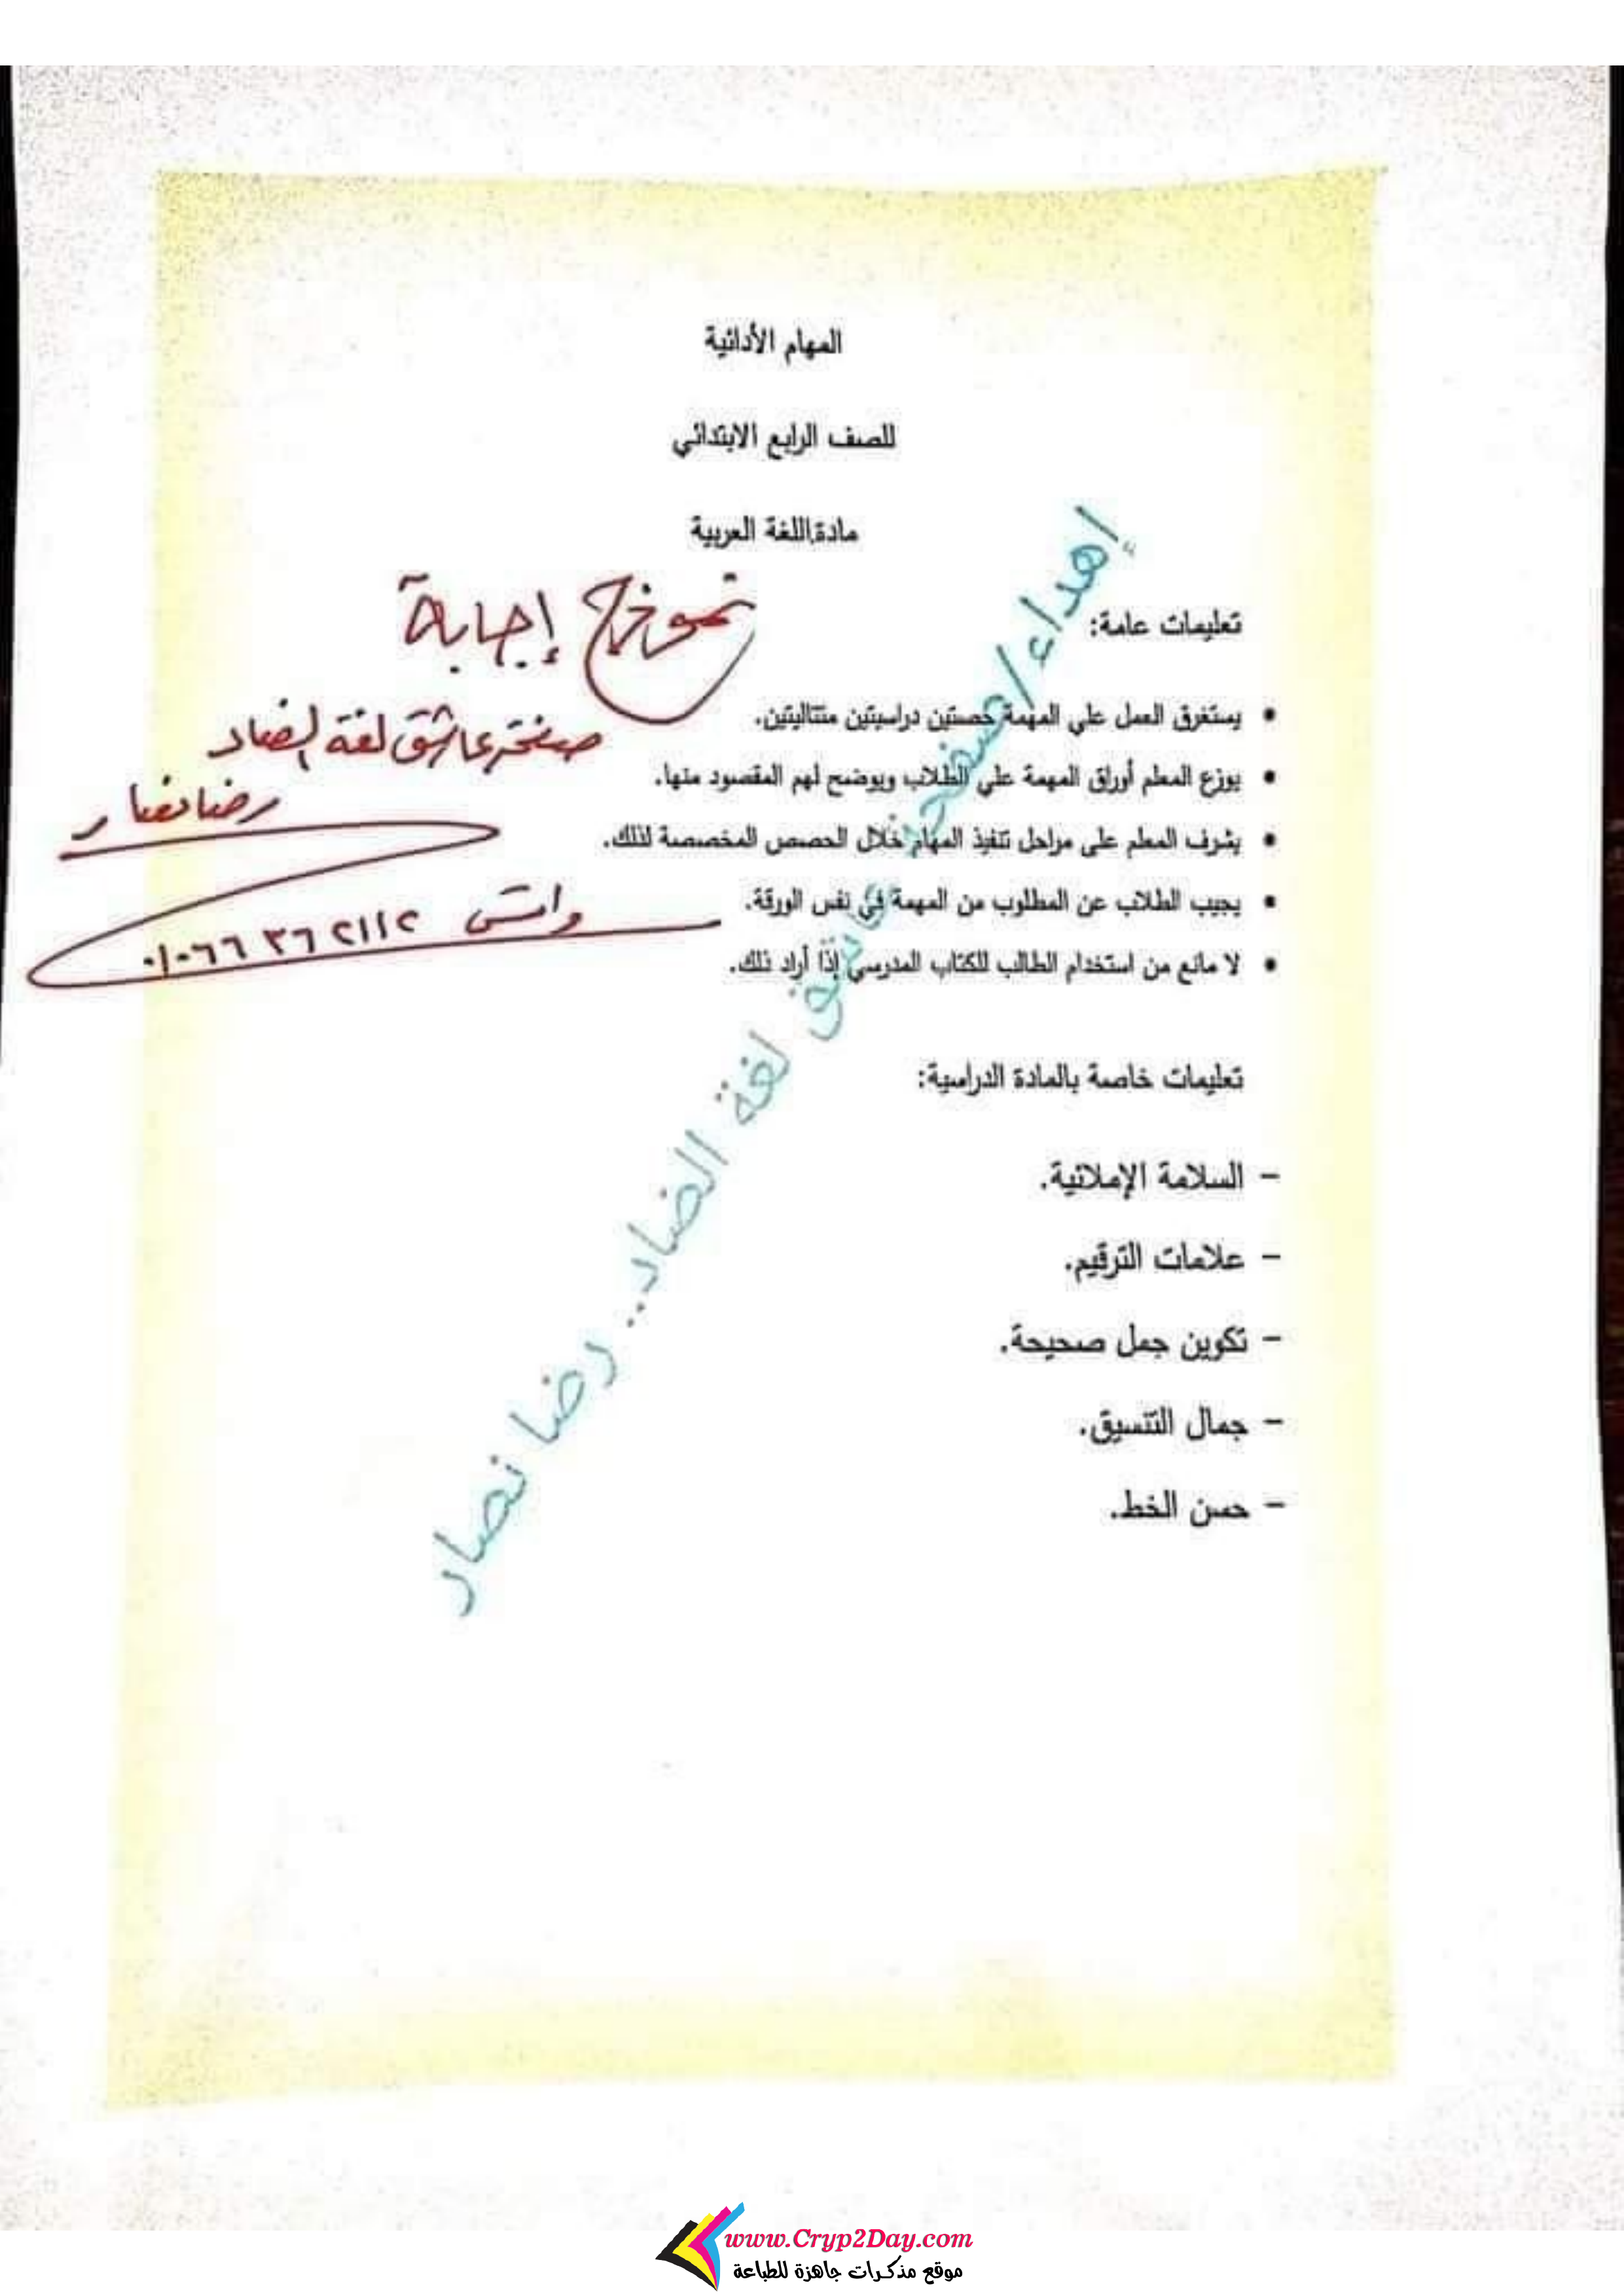 المهام الأدائية
للصف الرابع الابتدائي
مادة اللغة العربية
نموذج إجابة
تعليمات عامة:
صفحة عاشق لغة الضاد
رضا نصار
واتس ٠١٠٦٦٣٦٢١١٢
• يستغرق العمل علي المهمة حصتين دراسيتين متتاليتين.
• يوزع المعلم أوراق المهمة علي الطلاب ويوضح لهم المقصود منها.
• يشرف المعلم على مراحل تنفيذ المهام خلال الحصص المخصصة لذلك.
• يجيب الطلاب عن المطلوب من المهمة في نفس الورقة.
• لا مانع من استخدام الطالب للكتاب المدرسي إذا أراد ذلك.
تعليمات خاصة بالمادة الدراسية:
– السلامة الإملائية.
– علامات الترقيم.
– تكوين جمل صحيحة.
– جمال التنسيق.
– حسن الخط.
إهداء/صفحة عاشق لغة الضاد.. رضا نصار
www.Cryp2Day.com
موقع مذكرات جاهزة للطباعة